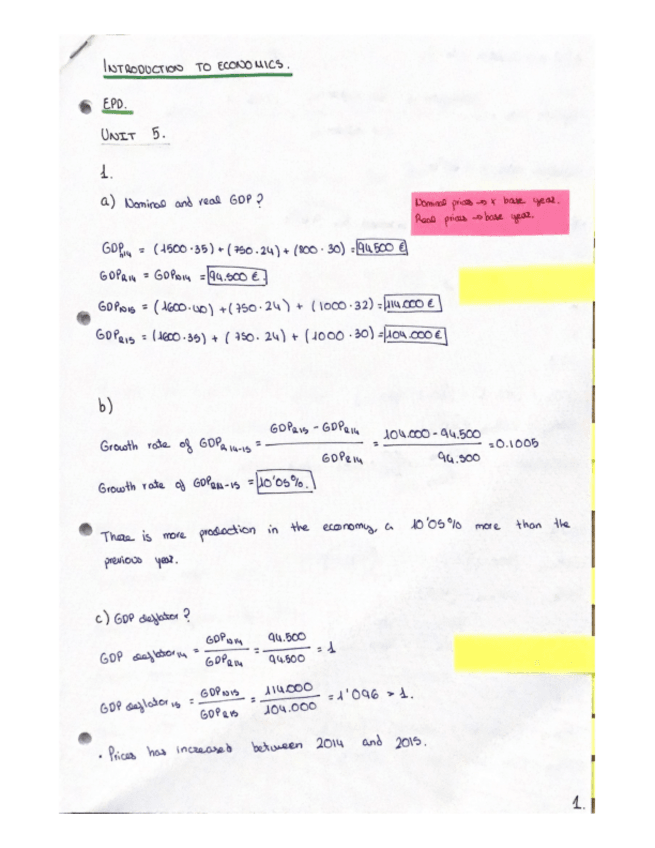 INTRODUCTION TO ECONOMICS.
EPD.
UNIT 5.
1.
a) Nominal and real GDP?
Nominal prices → x base year.
Real prices → base year.
GDP_N14 = (1500·35) + (750·24) + (800·30) = 94.500 €
GDP_R14 = GDP_N14 = 94.500 €.
GDP_N15 = (1600·40) + (750·24) + (1000·32) = 114.000 €
GDP_R15 = (1600·35) + (750·24) + (1000·30) = 104.000 €
b)
Growth rate of GDP_R14-15 = (GDP_R15 - GDP_R14) / GDP_R14 = (104.000 - 94.500) / 94.500 = 0.1005
Growth rate of GDP_R14-15 = 10'05%.
There is more production in the economy, a 10'05% more than the
previous year.
c) GDP deflator?
GDP deflator_14 = GDP_N14 / GDP_R14 = 94.500 / 94.500 = 1
GDP deflator_15 = GDP_N15 / GDP_R15 = 114.000 / 104.000 = 1'096 > 1.
· Prices has increased between 2014 and 2015.
1.